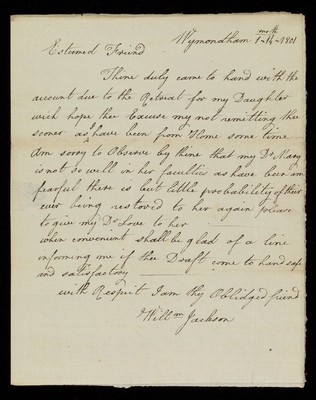 Wymondham 1 mth 14 1801
Esteemed Friend
Thine duly came to hand with the
account due to the Retreat for my Daughter
wich hope thee Excuse my not remitting thee
sooner as I have been from Home some time
Am sorry to Observe by thine that my Dr Mary
is not so well in her faculties as have been am
fearful there is but little probability of their
ever being restored to her again please
to give my Dr Love to her
when convenient shall be glad of a line
informing me if the Draft come to hand safe
and satisfactory
with Respect I am thy Obliged friend
Willm Jackson